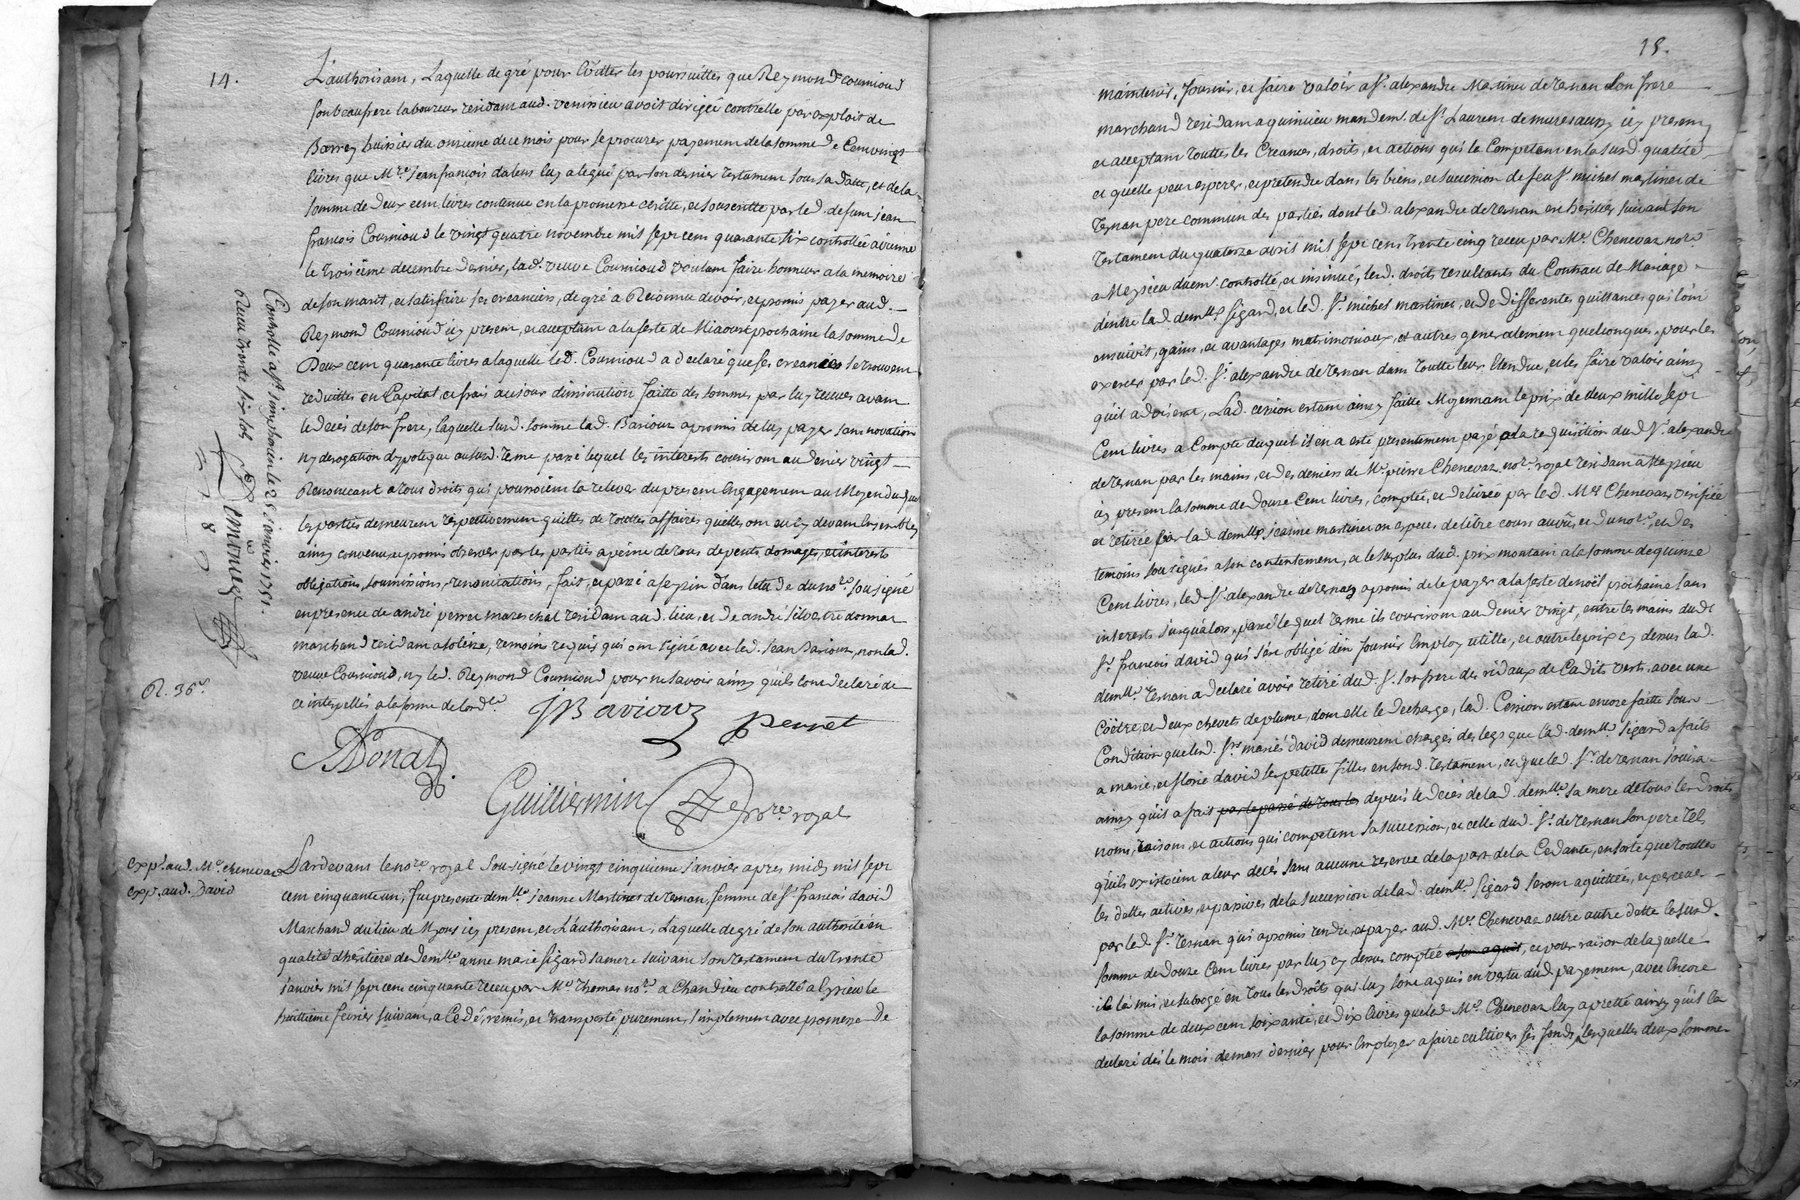 14.
L'authorisant, Laquelle de gré pour Eviter les poursuittes que Reymond Courrioud
son beaufrere laboureur residant aud. venissieu avoit dirigée contrelle par exploit de
huissier du onzieme de ce mois pour se procurer payement de la somme de Cent vingt
livres que Mre. Jean francois dalens luy a legué par son dernier testament sous sa datte, et de la
somme de Deux cent livres contenue en la promesse ecritte, et souscritte par led. defunt jean
francois Courrioud le vingt quatre novembre mil sept cent quarante six controllée a vienne
le troisième decembre dernier, lad. veuve Courrioud voulant faire honneur a la memoire
de son marit, et satisfaire ses creanciers, de gré a Reconnu devoir, et promis payer aud.
Reymond Courrioud icy present, et acceptant a la feste de Miaoust prochaine la somme de
Deux cent quarante livres a laquelle led. Courrioud a declaré que ses creances se trouvent
reduittes en Capital, et frais au jour diminution faitte des sommes par luy recues avant
le decés de son frere, laquelle susd. somme lad. Bariouz a promis de luy payer sans novation
ny derogation d'ypoteque au susd. terme passé lequel les interests couriront au denier vingt
Renoncant a tous droits qui pourroient la relever du present Engagement au Moyen duquel
les parties demeurent respectivement quittes de touttes affaires quelles ont eu cy devant ensemble
ainsy convenu et promis observer par les parties a peine de tous depents, domages, et interests
obligations, soumissions, renonciations, fait, et passé a serpin dans letude du nore. sousigné
en presence de andré perret mareschal residant aud. lieu, et de andré silvestre donnat
marchand residant a solèize, temoins requis qui ont signé avec led. Jean Bariouz, non lad.
veuve Courrioud, ny led. Reymond Courrioud pour ne savoir ainsy quils l'ont declaré de
ce interpellés a la forme de lordce.
JBariouz perret
ADonat
Guilliermin nore. royal
Controllé a st. simphorien le 28 janvier 1751.
Recu trente six sols
R. 36s.
exp. aud. Me. chenevaz
exp. aud. David
Pardevant le nore. royal sousigné le vingt cinquieme janvier apres midy mil sept
cent cinquante un, fut presente demlle. jeanne Martinet de ternan, femme de sr. francois david
Marchand du lieu de Myons icy present, et L'authorisant, Laquelle de gré de son authorité en
qualité d'héritière de demlle. anne marie sigard sa mere suivant son testament du trente
janvier mil sept cent cinquante recu par Me. Thomas nore. a Chandieu controllé a heyrieu le
huittieme fevrier suivant, a Cedé, remis, et transporté purement, simplement avec promesse de
15.
maintenir, fournir, et faire valoir a sr. alexandre Martinet de ternan son frere
marchand residant a quinsieu mandemt. de st. Laurent de mure aussy icy present
et acceptant touttes les Creances, droits, et actions qui la Competent en la susd. qualité,
et quelle peut esperer, et pretendre dans les biens, et succession de feu sr. michel martinet de
ternan pere commun des parties dont led. alexandre de ternan est heritier suivant son
testament du quatorze avril mil sept cent trente cinq receu par Me. Chenevaz nore.
a Meyzieu duemt. controllé, et insinué, lesd. droits resultants du Contract de Mariage
d'entre lad. demlle. sigard, et led. sr. michel martinet, et de differentes quittances qui l'ont
ensuivit, gains, et avantages matrimoniaux, et autres generalement quelconques, pour les
exercer par led. sr. alexandre de ternan dans toutte leur Etendue, et les faire valoir ainsy
qu'il advisera, Lad. cession estant ainsy faitte Moyennant le prix de deux mille sept
Cent livres a Compte duquel il en a esté presentement payé a la requisition dud. sr. alexandre
de ternan par les mains, et des deniers de Me. pierre Chenevaz nore. royal residant a Meyzieu
icy present la somme de douze Cent livres, comptée, et delivrée par led. Me. Chenevaz verifiée
et retirée par lad. demlle. jeanne martinet en especes de libre cours au vû, et du nore. et des
temoins sousignés a son contentement, et le surplus dud. prix montant a la somme de quinze
Cent livres, led. sr. alexandre de ternan a promis de le payer a la feste de noël prochaine sans
interests jusqu'alors, passé lequel terme ils couriront au denier vingt, entre les mains dudt.
sr. francois david qui s'est obligé d'en fournir Employ utille, et outre le prix cy dessus lad.
demlle. ternan a declaré avoir retiré dud. sr. son frere des ridaux de Cadis verts, avec une
Coëtre, et deux chevets de plume, dont elle le decharge, lad. Cession estant encore faitte sous
Condition que lesd. srs. mariés david demeurent chargés des legs que lad. demlle. sigard a faits
a marie, et florie david ses petittes filles en son d. testament, et que led. sr. de ternan jouira
ainsy qu'il a fait par le passé de tous les depuis le decés de lad. demlle. sa mere de tous les droits
noms, raisons, et actions qui competent sa succession, et celle dud. sr. de ternan son pere tels
qu'ils existoient a leur decés sans aucune reserve de la part de la Cedante, en sorte que touttes
les dettes actives, et passives de la succession de lad. demlle. sigard seront aquittées, et perceues
par led. sr. ternan qui a promis rendre, et payer aud. Me. Chenevaz outre autre dette la susd.
somme de douze Cent livres par luy cy dessus comptée a son aquit, et pour raison de laquelle
il la mis, et subrogé en tous les droits qui luy sont aquis en vertu dud. payement, avec Encore
la somme de deux cent soixante, et dix livres que led. Me. Chenevaz luy a pretté ainsy qu'il la
declaré dés le mois de mars dernier pour Employer a faire cultiver ses fonds, lesquelles deux sommes